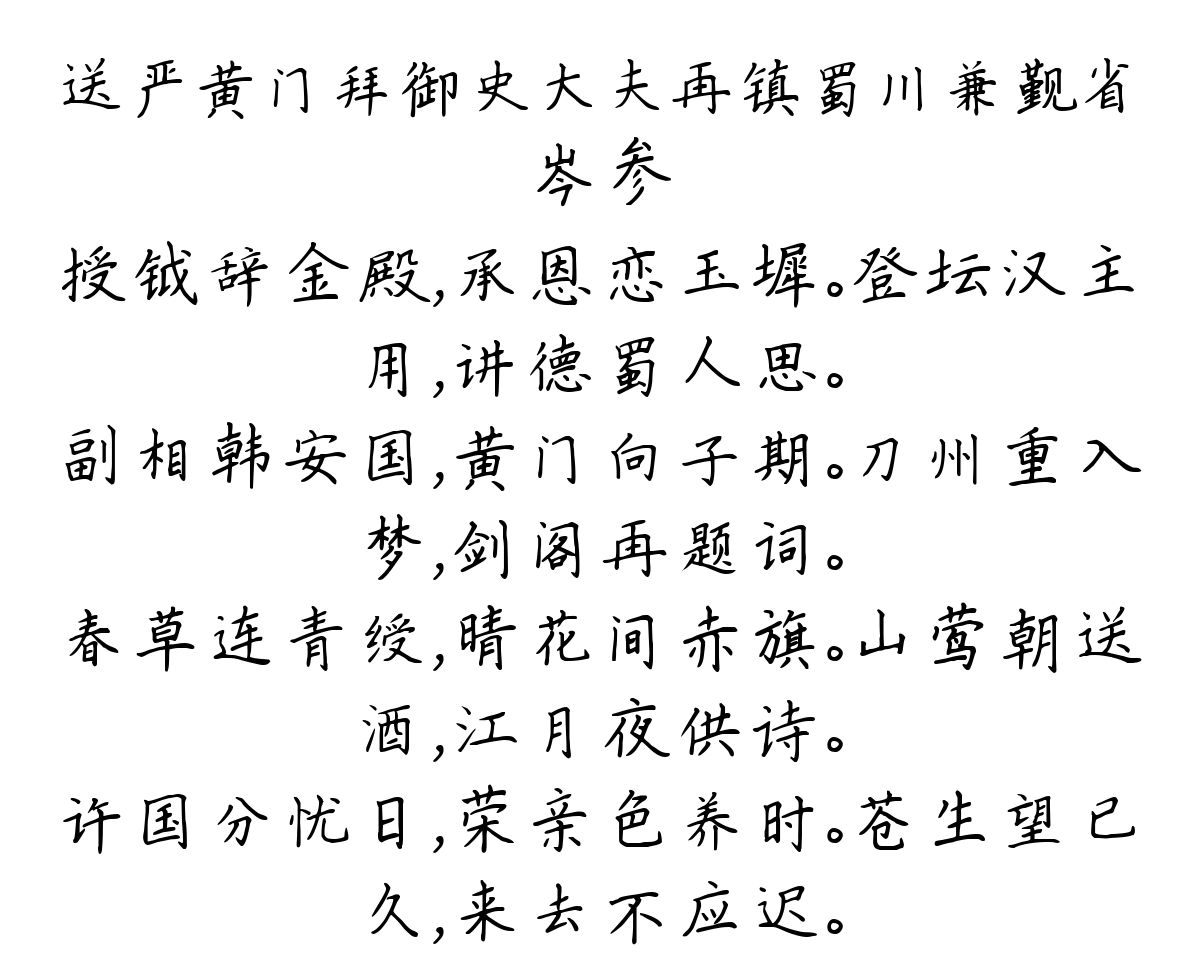 送严黄门拜御史大夫再镇蜀川兼觐省
岑参
授钺辞金殿,承恩恋玉墀。登坛汉主
用,讲德蜀人思。
副相韩安国,黄门向子期。刀州重入
梦,剑阁再题词。
春草连青绶,晴花间赤旗。山莺朝送
酒,江月夜供诗。
许国分忧日,荣亲色养时。苍生望已
久,来去不应迟。